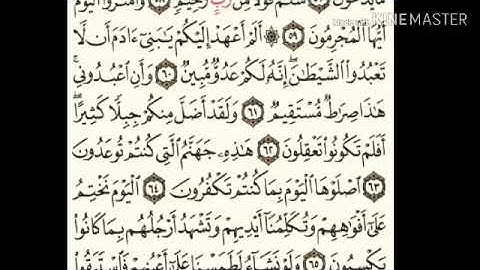 سَلَٰمٌ قَوْلًا مِّن رَّبٍّ رَّحِيمٍ ۝٥٨ وَٱمْتَٰزُوا۟ ٱلْيَوْمَ
أَيُّهَا ٱلْمُجْرِمُونَ ۝٥٩ ۞ أَلَمْ أَعْهَدْ إِلَيْكُمْ يَٰبَنِىٓ ءَادَمَ أَن لَّا
تَعْبُدُوا۟ ٱلشَّيْطَٰنَ ۖ إِنَّهُۥ لَكُمْ عَدُوٌّ مُّبِينٌ ۝٦٠ وَأَنِ ٱعْبُدُونِى ۚ
هَٰذَا صِرَٰطٌ مُّسْتَقِيمٌ ۝٦١ وَلَقَدْ أَضَلَّ مِنكُمْ جِبِلًّا كَثِيرًا ۖ
أَفَلَمْ تَكُونُوا۟ تَعْقِلُونَ ۝٦٢ هَٰذِهِۦ جَهَنَّمُ ٱلَّتِى كُنتُمْ تُوعَدُونَ
۝٦٣ ٱصْلَوْهَا ٱلْيَوْمَ بِمَا كُنتُمْ تَكْفُرُونَ ۝٦٤ ٱلْيَوْمَ نَخْتِمُ
عَلَىٰٓ أَفْوَٰهِهِمْ وَتُكَلِّمُنَآ أَيْدِيهِمْ وَتَشْهَدُ أَرْجُلُهُم بِمَا كَانُوا۟
يَكْسِبُونَ ۝٦٥ وَلَوْ نَشَآءُ لَطَمَسْنَا عَلَىٰٓ أَعْيُنِهِمْ فَٱسْتَبَقُوا۟
Made with KINEMASTER